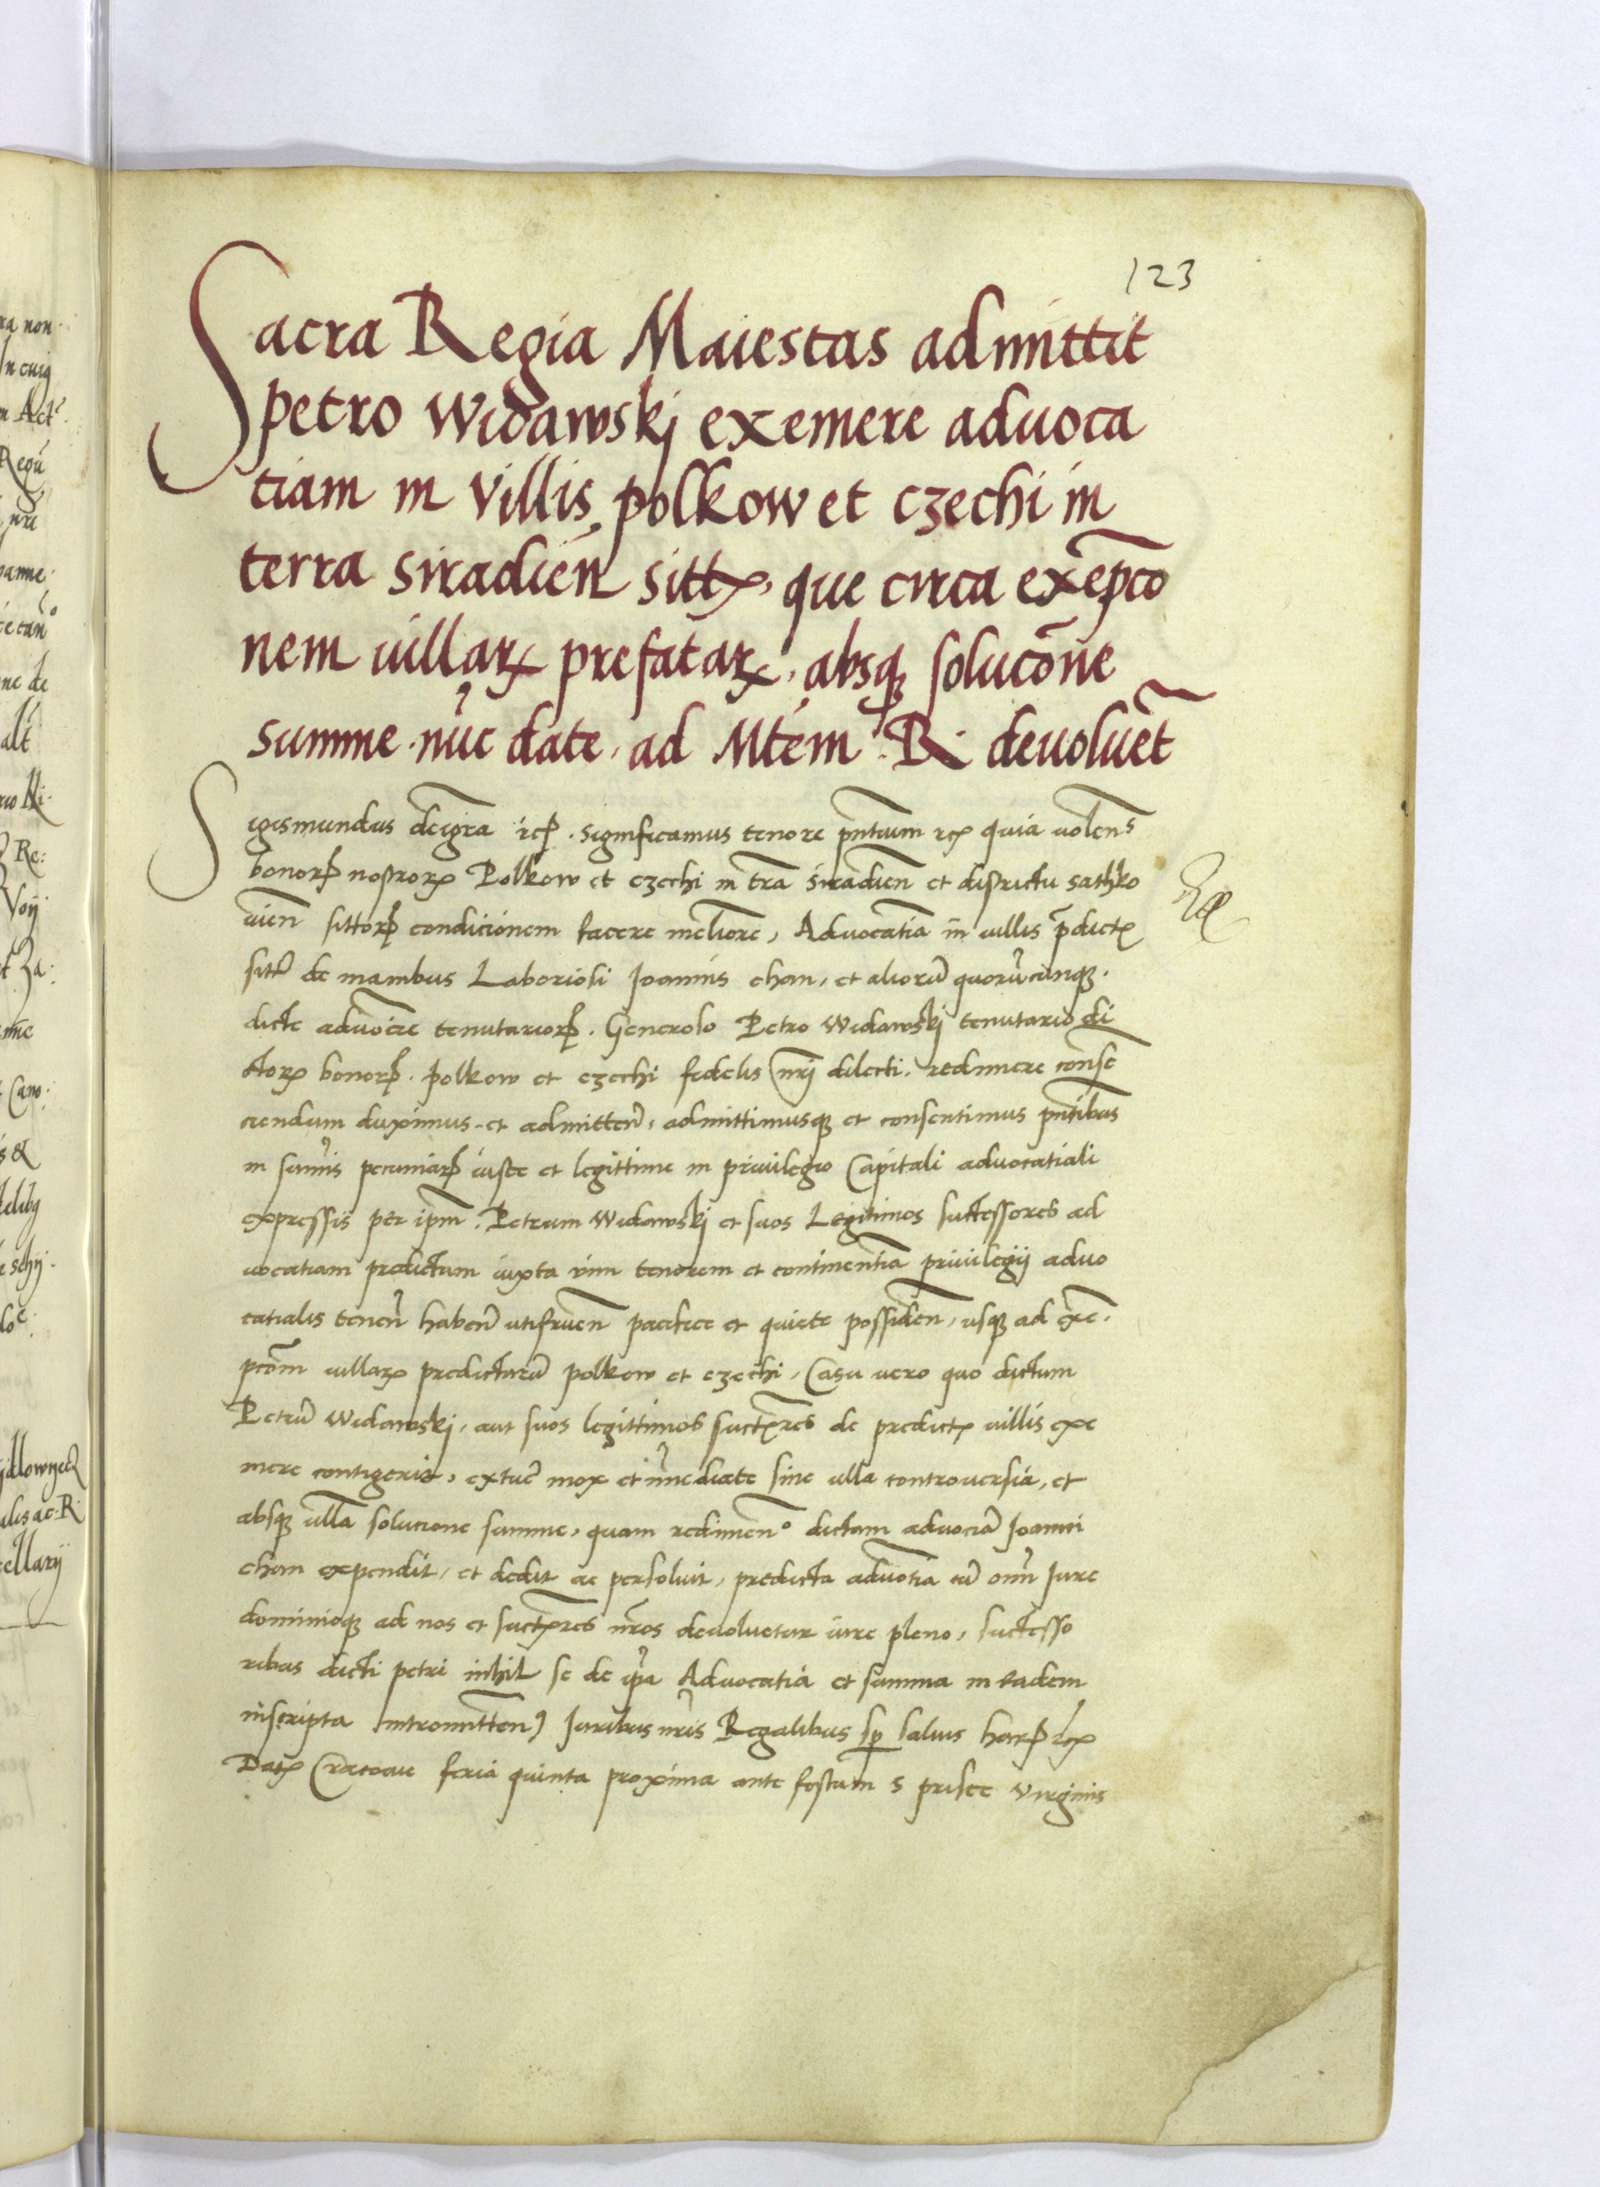 123
Sacra Regia Maiestas admittit
petro Widawskj exemere aduoca
tiam in villis polkow et czechi in
terra siradien̄ sittꝝ, que circa exēpcō
nem uillarꝝ prefatarꝝ, absqꝫ solucōne
summe nūc date, ad Mtem R. deuoluet̄
Sigismundus deigr̄a ꝛcꝭ. significamus tenore pn̄tium ꝛcꝭ quia uolen̄s
bonorꝝ nostrorꝝ Polkow et czechi in t̄ra siradien̄ et districtu sathko
uien̄ sittorꝝ condicionem facere melioreꝫ, Aduocatiā in uillis p̄dictꝭ
sitā de manibus Laboriosi Joannis chan, et aliorū quorūcunqꝫ.
dicte aduocie tenutariorꝝ. Generoso Petro Widawskj tenutario di
ctorꝝ bonorꝝ. polkow et czechi fidelis nr̄j dilecti, redimere conse
ciendum duximus et admittenꝫ, admittimusqꝫ et consentimus pn̄tibus
in sumis pecuniarꝝ iuste et legittime in priuilegio Capitali aduocatiali
expressis per ipm̄. Petrum Widawskj et suos Legitimos successores ad
uocatiam predictam iuxta vim tenorem et continentiā priuilegij aduo
catialis tenen̄ haben̄ utifruen̄ pacifice et quiete possiden̄, usqꝫ ad exe.
pcōm uillarꝝ predictarū polkow et czechi, Casu uero quo dictum
Petrū Widawskj, aut suos legittimos succꝭres de predictꝭ uillis exe
mere contigerit, extūc mox et imediate sine ulla controuersia, et
absqꝫ ulla solucione summe, quam redimen̄o dictam aduociā Joanni
chan expendit, et dedit ac persoluit, predicta aduotia cū om̄i Jure
dominioqꝫ ad nos et succꝭres nr̄os deuoluetur iure pleno, successo
ribus dicti petri nihil se de ip̄a Aduocatia et summa in eadem
inscripta intromitten̄ꝰ Juribus nr̄is Regalibus sꝑ saluis harꝝ ꝛcꝭ
Datꝭ Cracouie feria quinta proxima ante festum s prisce virginis